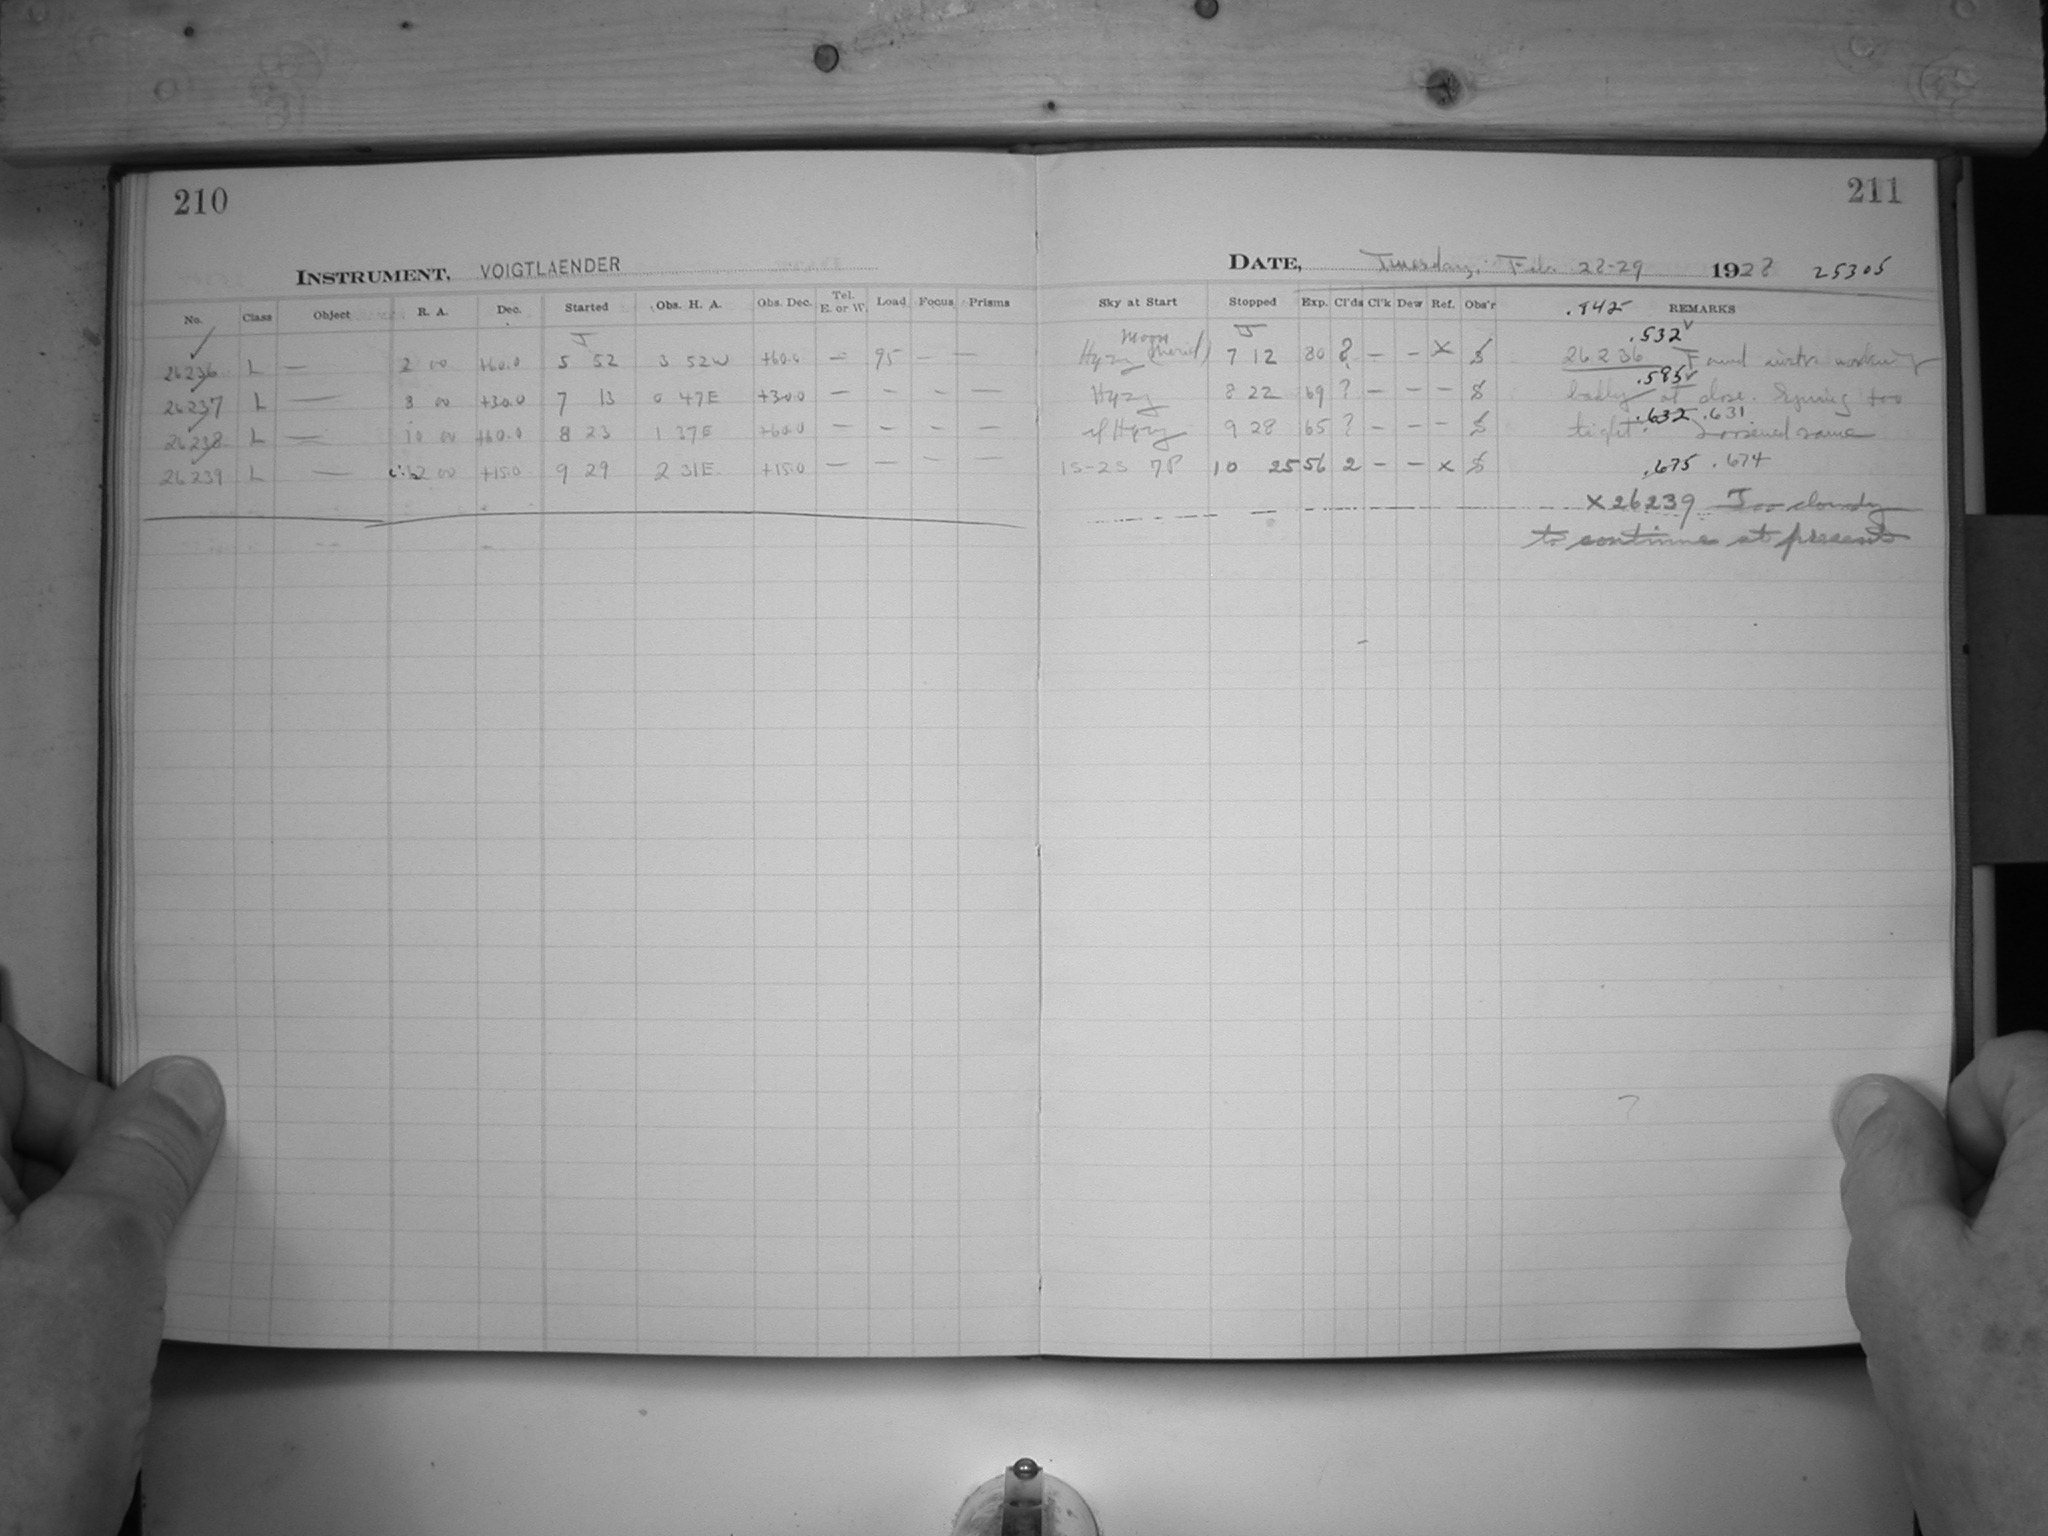 210
INSTRUMENT, VOIGTLAENDER
No. Class Object R. A. Dec. Started Obs. H. A. Obs. Dec. Tel. E. or W. Load Focus Prisms
J
26236 L — 2 00 +60.0 5 52 3 52W +60.0 — 95 — —
26237 L — 8 00 +30.0 7 13 0 47E +30.0 — — — —
26238 L — 10 00 +60.0 8 23 1 37E +60.0 — — — —
26239 L — 12 00 +15.0 9 29 2 31E +15.0 — — — —
211
DATE, Tuesday, Feb. 28-29 1928 25305
Sky at Start Stopped Exp. Cl'ds Cl'k Dew Ref. Obs'r .842 REMARKS
Moon J .532
Hazy 7 12 80 ? — — X S 26236 Found instr. working
.585
Hazy 8 22 69 ? — — — S badly at close. Spring too
.632 .631
Hazy 9 28 65 ? — — — S tight. Loosened same
1S-2S 7P 10 25 56 2 — — x S .675 .674
X 26239 Too cloudy
to continue at present